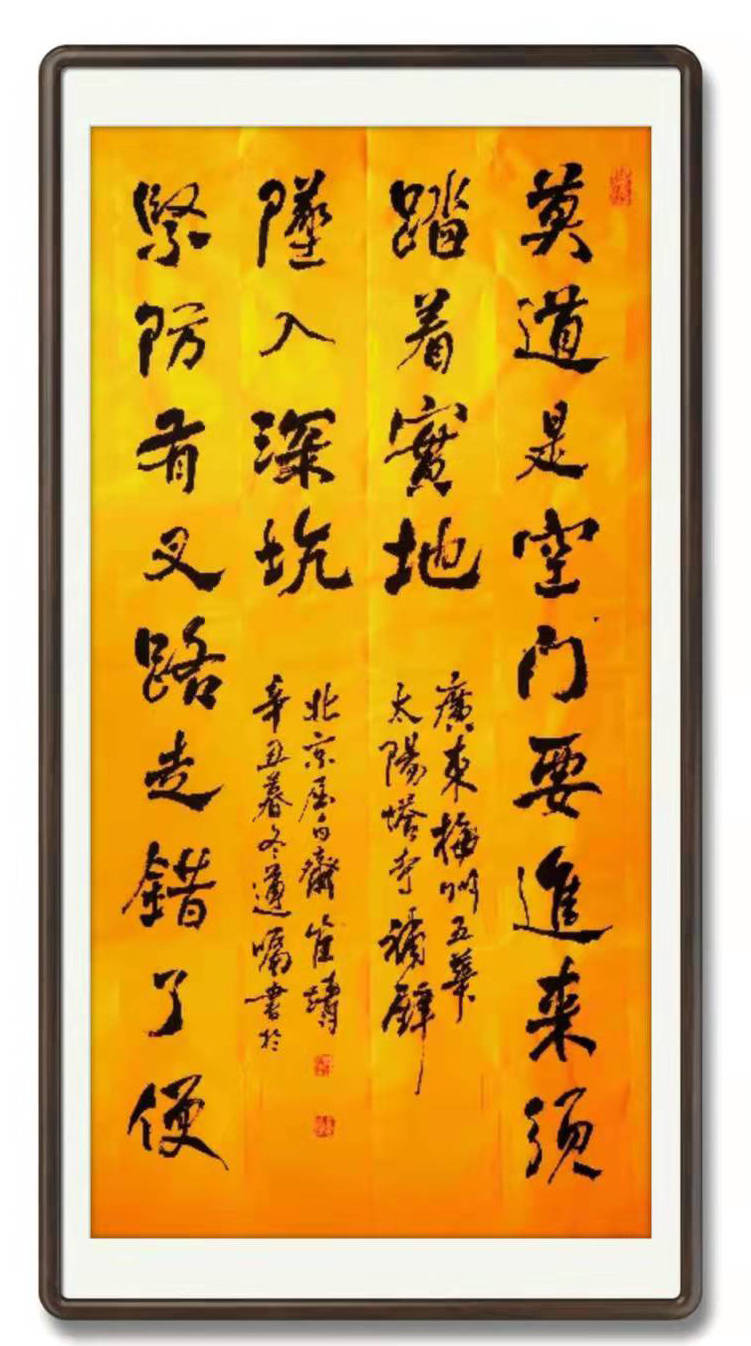 莫道是空門要進来須
踏着實地
廣東梅州五華
太陽塔寺補壁
緊防有叉路走錯了便
墜入深坑
辛丑暮冬遵嘱書於
北京白齋崔